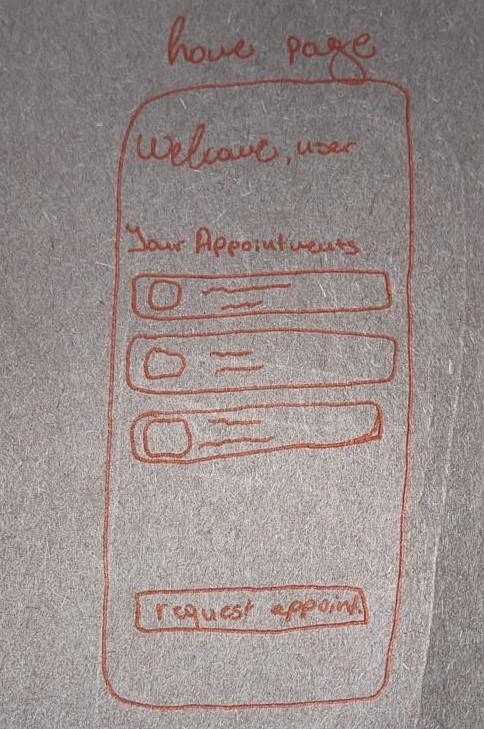 home page
Welcome, user
Your Appointments
request appoint.